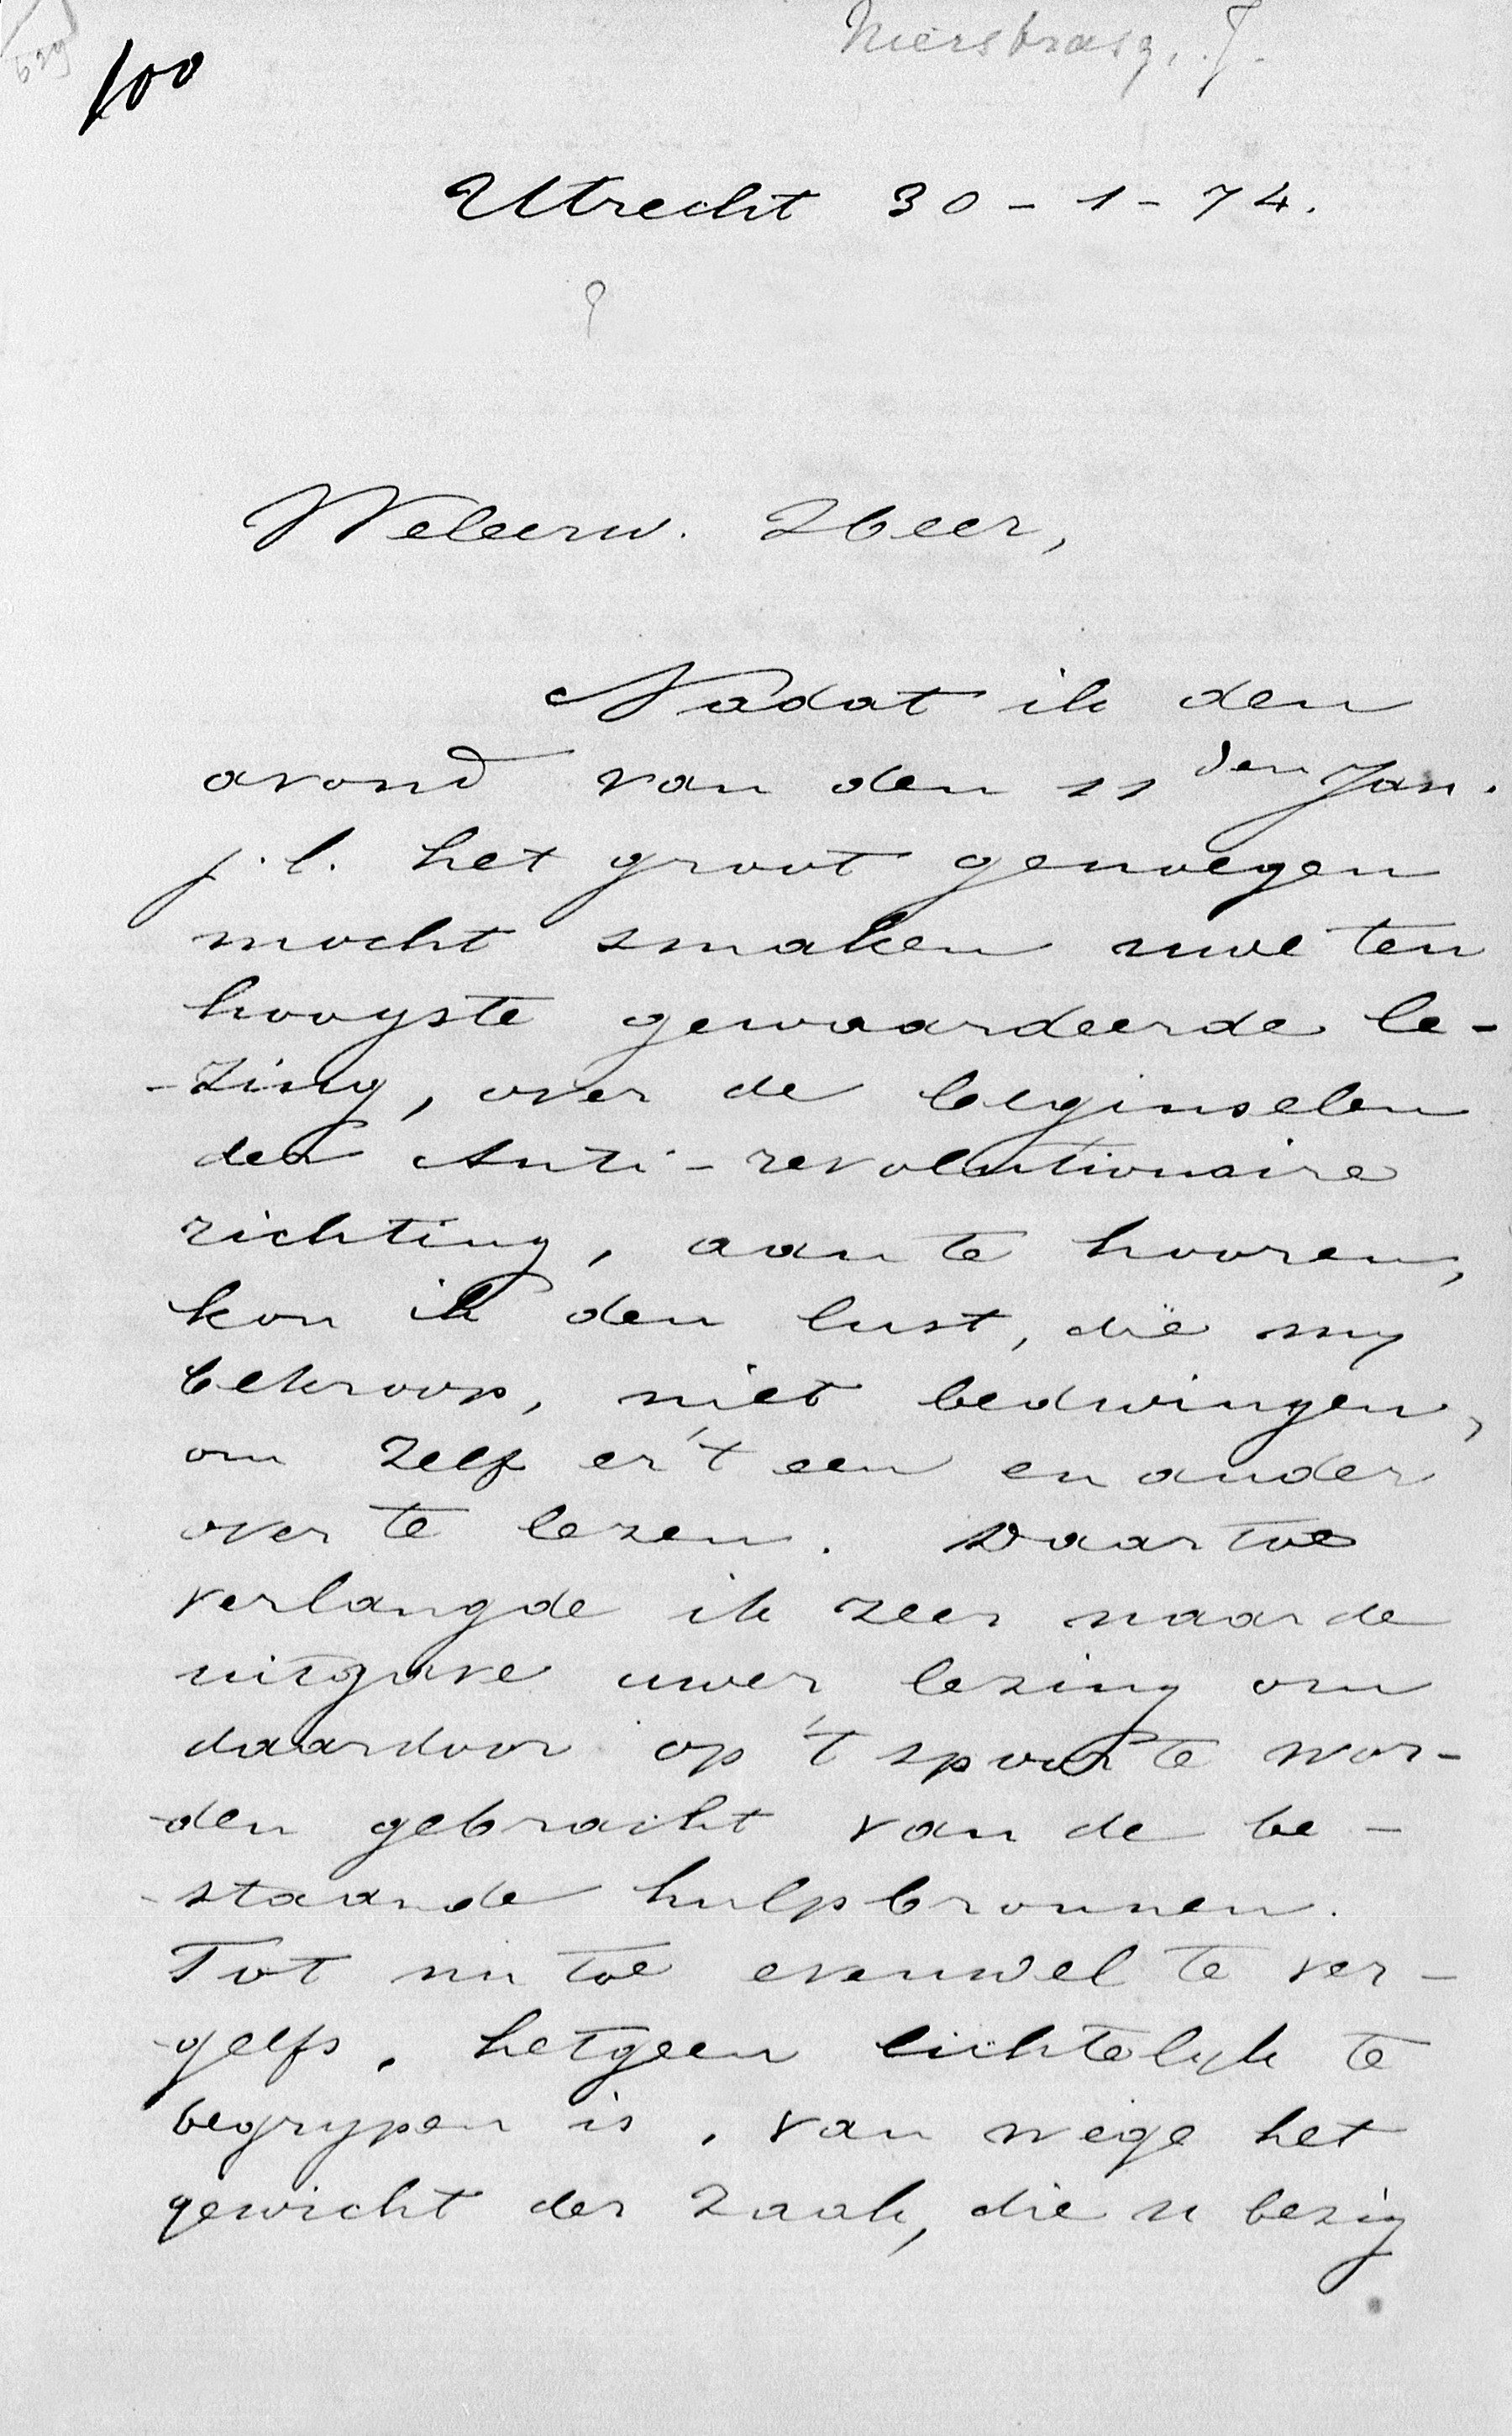 100
Utrecht 30-1-74.
Weleerw. Heer,
Nadat ik den
avond van den 11den Jan.
j.l. het groot genoegen
mocht smaken uwe ten
hoogste gewaardeerde le-
-zing, over de beginselen
der Anti-revolutionaire
richting, aan te hooren,
kon ik den lust, die my
bekroop, niet bedwingen,
om zelf er 't een en ander
over te lezen. Daartoe
verlangde ik zeer naar de
uitgave uwer lezing om
daardoor op 't spoor te wor-
-den gebracht van de be-
-staande hulpbronnen.
Tot nu toe evenwel te ver-
-geefs, hetgeen lichtelyk te
begrypen is, van wege het
gewicht der zaak, die u bezig